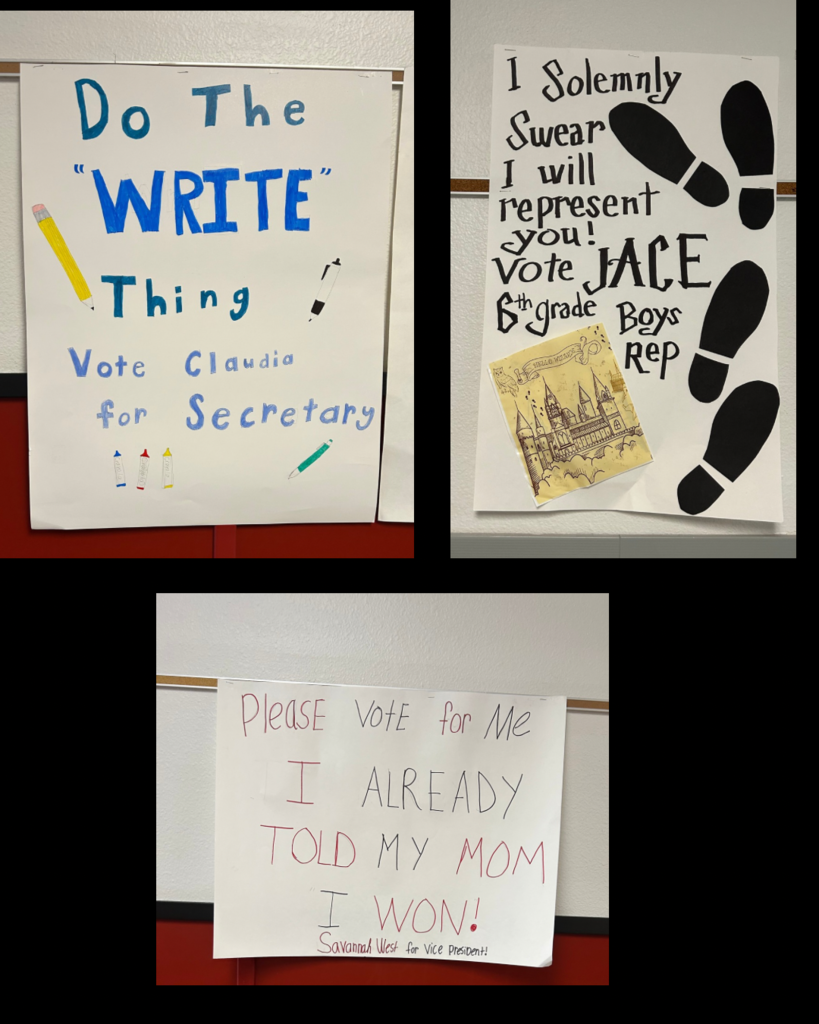 Do The
"WRITE"
Thing
Vote Claudia
for Secretary
I Solemnly
Swear
I will
represent
you!
Vote JACE
6th grade Boys
Rep
PleasE VotE for Me
I ALREADY
TOLD MY MOM
I WON!
Savannah West for Vice President!